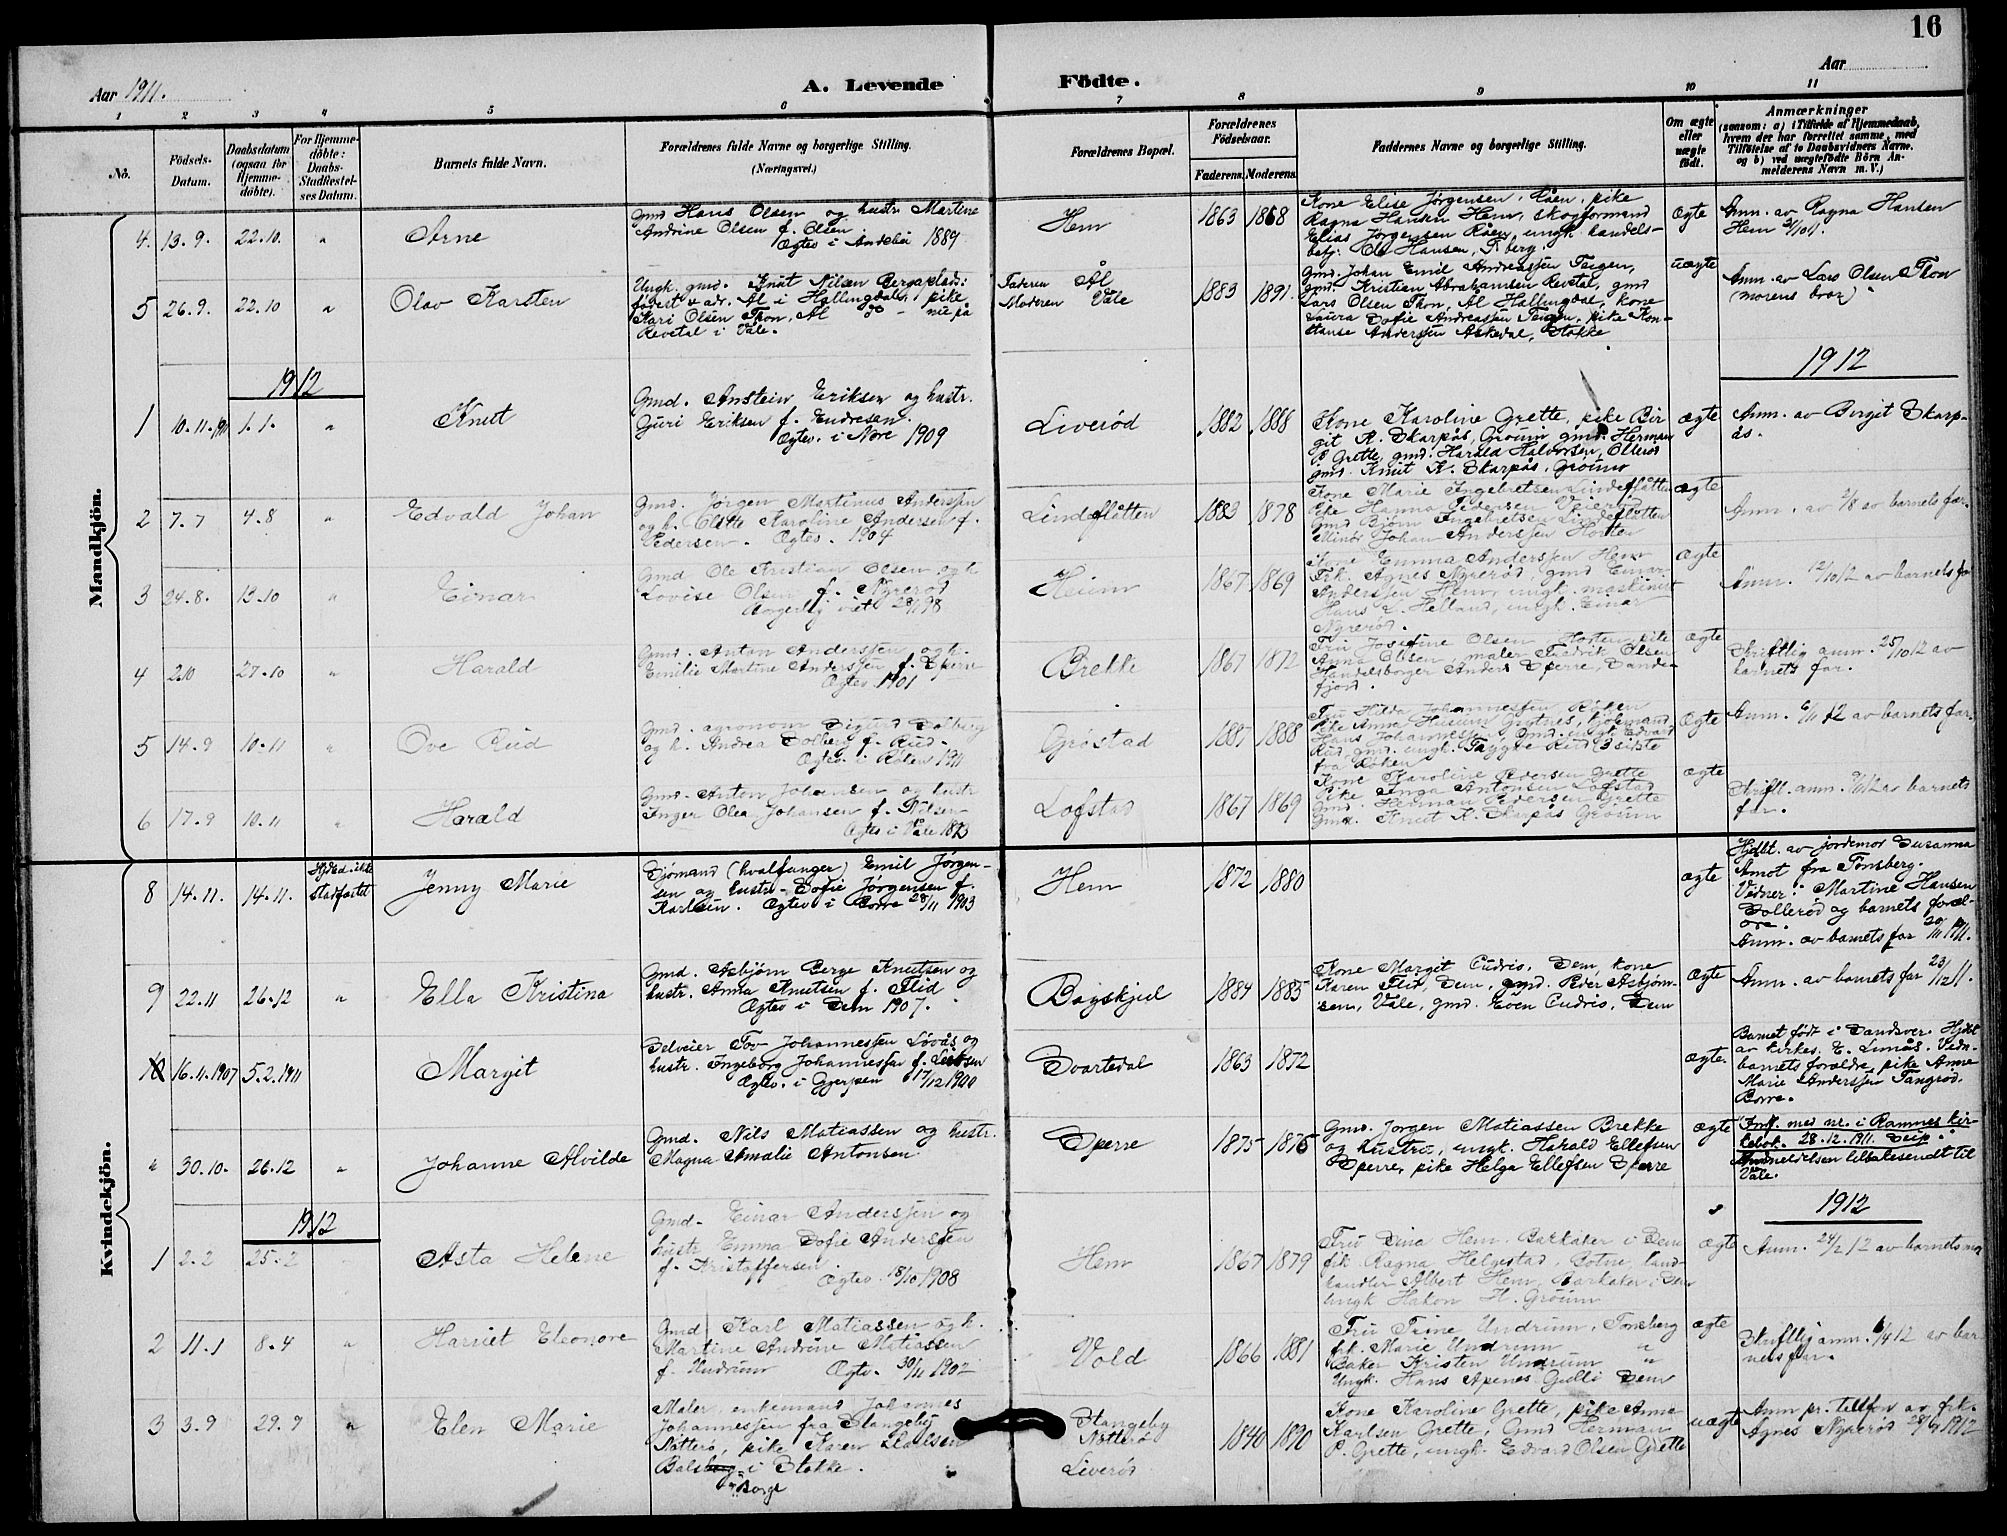 16
Aar 1911.
A. Levende Födte.
Aar
1 2 3 4 5 6 7 8 9 10 11
No.
Födsels-
Datum.
Daabsdatum
(ogsaa for
Hjemme-
döbte).
For Hjemme-
döbte:
Daabs-
Stadfæstel-
ses Datum.
Barnets fulde Navn.
Forældrenes fulde Navne og borgerlige Stilling.
(Næringsvei.)
Forældrenes Bopæl.
Forældrenes
Födselsaar.
Faderens. Moderens.
Faddernes Navne og borgerlige Stilling.
Om ægte
eller
uægte
födt.
Anmærkninger
(saasom: a) i Tilfælde af Hjemmedaab,
hvem der har forrettet samme, med
Tilföielse af to Daabsvidners Navne.
og b) ved uægtefödte Börn An-
melderens Navn m. V.)
Mandkjön.
4. 13.9. 22.10. " Arne
Gmd Hans Olsen og hustr. Martine
Andrine Olsen f. Olsen
Ægtev i Andebu 1889
Hem 1863 1868
Kone Elise Jørgensen, Råen, pike
Ragna Hansen Hem, skogformand
Elias Jørgensen Råen, ungk. handels-
betj. Ole Hansen, T.berg.
ægte
Anm. av Ragna Hansen
Hem
5 26.9. 22.10 " Olav Karsten
Ungk. gmd. Knut Nilsen Bergaplads:
Al i Hallingdal, pike
Kari Olsen Thon, Ål do - nu på
Revetal i Våle.
Faderen Ål
Moderen Våle
1883 1891
Gmd. Johan Emil Andreassen Teigen,
gmd. Kristian Abrahamsen Revetal, gmd
Lars Olsen Thon, Al Hallingdal, kone
Laura Sofie Andreassen Teigen, pike Kon-
stanse Anderssen Askedal, Stokke
uægte
Anm. av Lars Olsen Thon
(morens bror)
1912
1912
1 10.11.1911 1.1. " Knut
Gmd. Anstein Eriksen og hustr.
Guri Eriksen f. Endresen.
Ægtev. i Nore 1909
Liverød 1882 1888
Kone Karoline Grette, pike Bir-
git K. Skarpås, Grouim gmd. Herman
P Grette, gmd. Harald Halvorsen, Ollerød
gmd. Knut K. Skarpås, Grouim
ægte
Anm. av Birgit Skarp-
ås.
2 7.7 4.8 " Edvald Johan
Gmd. Jørgen Martinus Anderssen
og h. Olette Karoline Andersen f.
Pedersen. Ægtev. 1904
Lindeflåtten 1883 1878
Kone Marie Ingebretsen Lindeflåtten
Pike Hanna Pedersen
Gmd Bjørn Ingebretsen Lindeflåtten
Minør Johan Anderssen Horten
ægte
Anm. av 2/8 av barnets far.
3 24.8. 13.10 " Einar
Gmd Ole Kristian Olsen og h
Lovise Olsen f. Nyrerød
Borgerlig viet
Heiem 1867 1869
Kone Emma Anderssen Hem
Frk. Agnes Nyrerød, gmd Einar
Anderssen Hem, ungk. maskinist
Hans L. Helland, ungk. Einar
Nyrerød.
ægte
Anm. 12/10 12 av barnets far
4 2.10 27.10 " Harald
Gmd. Anton Anderssen og h.
Emilie Martine Anderssen f. Sperre
Ægtev. 1901
Brekke 1867 1872
Fru Josefine Olsen, Horten, pike
Anna Olsen, maler Fredrik Olsen
Handelsborger Anders Sperre, Sande-
fjord.
ægte
Skriftlig anm. 25/10 12 av
barnets far.
5 14.9 10.11 " Ove Rud
Gmd. agronom Sigurd Solberg
og h. Andrea Solberg f. Rud.
Ægtev. i Røken 1911
Grøstad 1887 1888
Fru Hilda Johannessen Røken
Pike Anna
Hans Johannessen, Gmd. ungk. Edvard
Rud gmd. ungk. Trygve Rud (3 siste
fra Røken
Ægte
Anm. 6/11 12 av barnets far.
6 17.9 10.11 " Harald
Gmd. Anton Johansen og hustr
Inger Olea Johansen f. Nilsen
Ægtev i Våle 1893
Lofstad 1867 1869
Kone Karoline Pedersen Grette
Pike Inga Antonsen Lofstad
Gmd. Herman Pedersen Grette
Gmd. Knut K. Skarpås Grouim
ægte
Skriftl. anm. av barnets
far.
Kvindekjön.
8 14.11. 14.11. Hjd.ed. ikke
stadfæstet
Jenny Marie
Sjømand (hvalfanger) Emil Jørgen-
sen og hustr. Sofie Jørgensen f.
Karlsen. Ægtev i Borre 28/11 1903
Hem 1872 1880
ægte
Hjdbt. av jordemor Susanna
Amot fra Tønsberg.
Vidner: Martine Hansen
Sollerød og barnets foræl-
dre.
Anm. av barnets far 20/11 1911.
9 22.11 26.12 " Ella Kristina
Gmd. Asbjørn Berge Knutsen og
hustr. Anna Knutsen f. Flid
Ægtev i Sem 1907.
Bøyskjul 1884 1885
Kone Margit Gudris, Sem, kone
Karen Flid, Sem, gmd. Peder Asbjørn-
sen, Våle, gmd. Even Gudris, Sem
ægte
Anm. av barnets far 23/12 11.
10 16.11.1907 5.2.1911 Margit
Selveier Tov Johannessen Løvås og
hustr. Ingeborg Johannessen f.
Ægtev. i Gjerpen 17/12 1900
Svartedal 1863 1872
ægte.
Barnet født i Sandsver. Hjdbt
av kirkes. E. Limås. Vidn.
barnets forældre, pike Anne
Marie Anderssen Tangrød.
Borre.
" 30.10. 26.12 " Johanne Alvilde
Gmd. Nils Matiassen og hustr.
Magna Amalie Antonsen.
Sperre 1875 1875
Gmd. Jørgen Matiassen Brekke
og hustru, ungk. Harald Ellefsen
Sperre, pike Helga Ellefsen Sperre
ægte
Indf. med nr. i Ramnes kir-
kebok. 28.12.1911.
Anmeldelsen tilbakesendt til
Våle.
1912
1912
1 2.2 25.2 Asta Helene
Gmd. Einar Anderssen og
hustr Emma Sofie Anderssen
f. Kristoffersen.
Ægtev. 18/10 1908
Hem 1867 1879
Fru Dina Hem Barkåker i Sem
frk. Ragna Helgestad, Botne, land-
handler Albert Hem, Barkåker i Sem
ungk Hakon H. Grouim
ægte
Anm. 24/2 12 av barnets mor
2 11.1 8.4 " Harriet Eleonore
Gmd. Karl Matiassen og h.
Martine Andrine Matiassen
f. Undrum Ægtev. 30/11 1902
Vold 1866 1881
Fru Trine Undrum, Tønsberg
frk. Marie Undrum "
Baker Kristen Undrum "
Ungk. Hans Apenes Gulli Sem
ægte
Skriftlig anm. 12 av bar-
nets far.
3 3.9 29.9 " Elen Marie
Maler, enkemand Johannes
Johannessen fra Stangeby
Nøtterø, pike Karen Karlsen
Bols i Stokke.
Borge
Stangeby
Nøtterø
Liverød
1840 1890
Kone Karoline Grette, pike Anna
Karlsen Grette, Gmd Herman
P. Grette, ungk. Edvard Olsen Grette
uægte
Anm pr. telefon av frk.
Agnes Nyrerød 28/9 1912